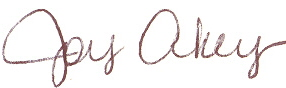 Joy Akey